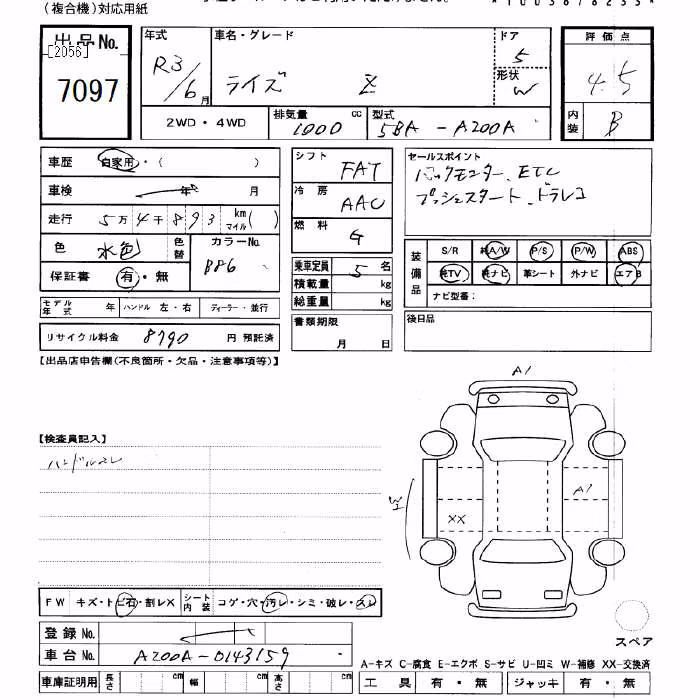 (複合機)対応用紙
出品No.
[2056]
7097
年式
R3/6月
車名・グレード
ライズ Z
ドア
5
形状
W
評価点
4.5
内装
B
2WD・4WD
排気量 cc
1000
型式
5BA-A200A
車歴 自家用・( )
車検 年 月
走行 5万4千893 km マイル( )
色 水色 色替
カラーNo.
B86
保証書 有・無
モデル年式 年 ハンドル 左・右 ディーラー・並行
リサイクル料金 8790 円 預託済
シフト
FAT
冷房
AAC
燃料
G
乗車定員 5 名
積載量 kg
総重量 kg
書類期限
月 日
セールスポイント
バックモニター、ETC
プッシュスタート、ドラレコ
装備品
S/R 純A/W P/S P/W ABS
純TV 純ナビ 革シート 外ナビ エアB
ナビ型番:
後日品
【出品店申告欄(不良箇所・欠品・注意事項等)】
【検査員記入】
ハンドルスレ
A1
A1
XX
FW キズ・トビ石・割レX シート内装 コゲ・穴・汚レ・シミ・破レ・スレ
登録No.
車台No. A200A-0143159
車庫証明用 長さ cm 幅 cm 高さ cm
スペア
A-キズ C-腐食 E-エクボ S-サビ U-凹ミ W-補修 XX-交換済
工具 有・無 ジャッキ 有・無